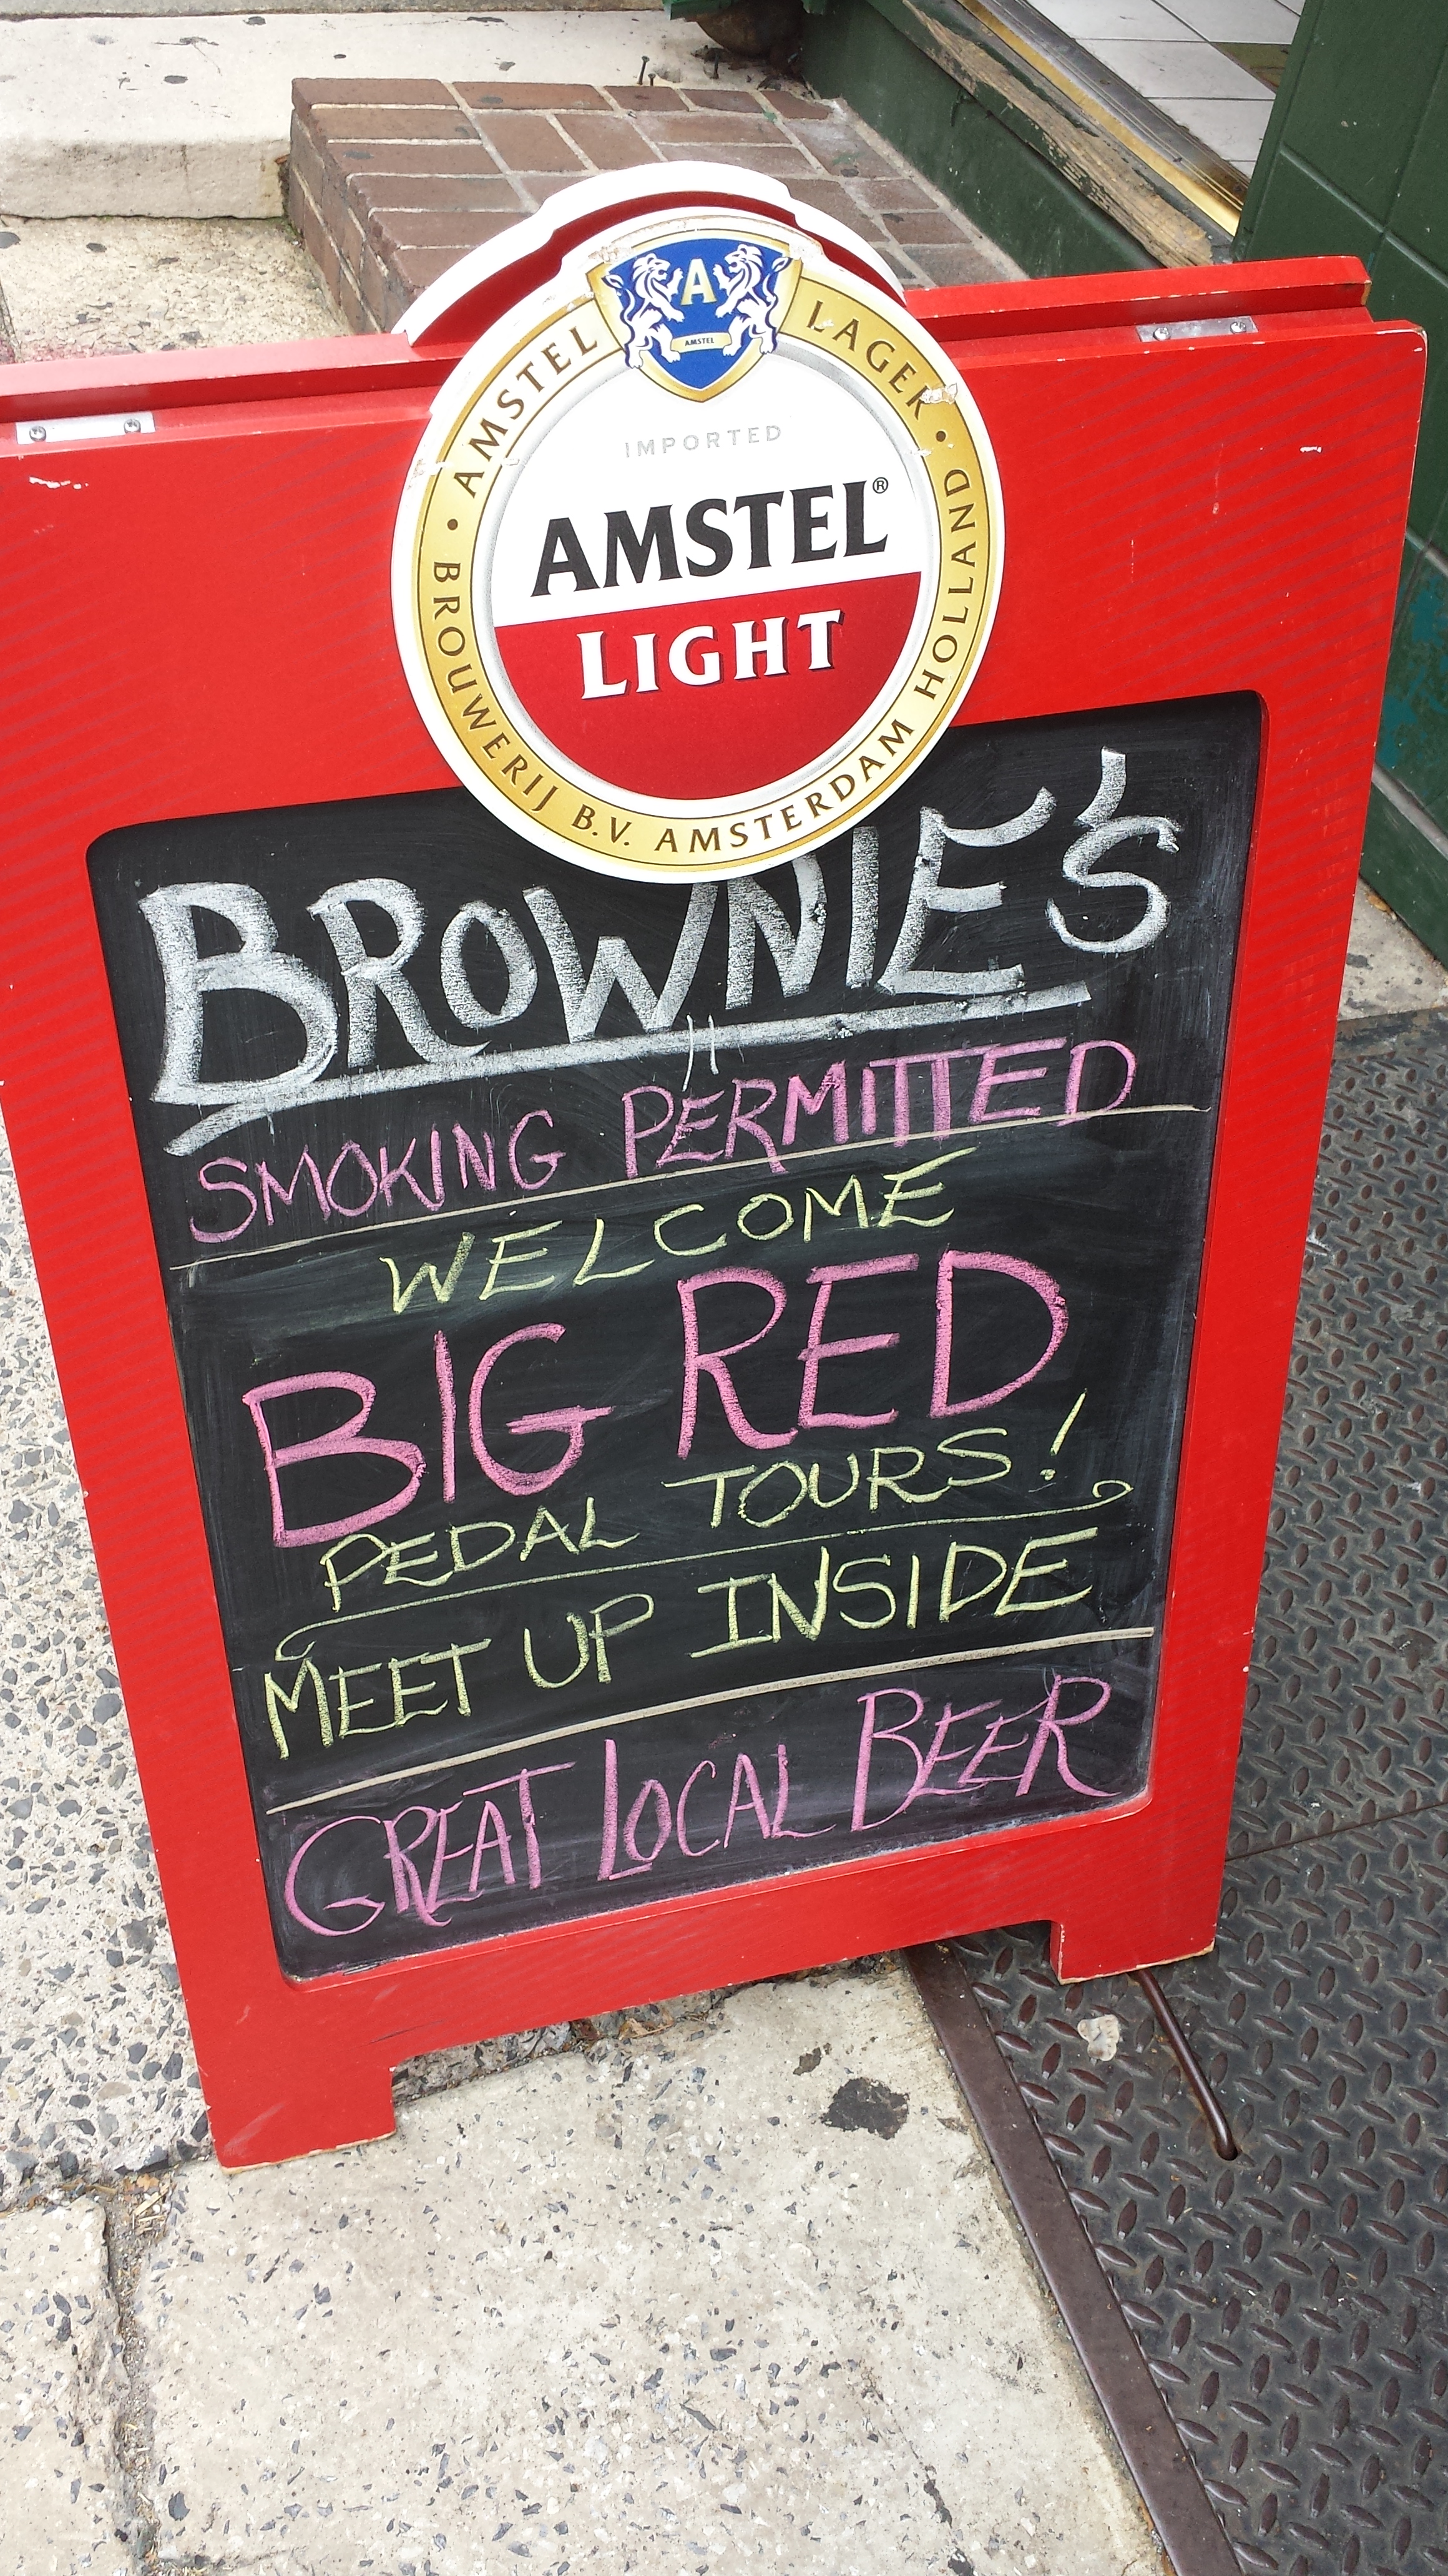 A
AMSTEL
AMSTEL LAGER
IMPORTED
AMSTEL®
LIGHT
• BROUWERIJ B.V. AMSTERDAM HOLLAND •
BROWNIE'S
SMOKING PERMITTED
WELCOME
BIG RED
PEDAL TOURS!
MEET UP INSIDE
GREAT LOCAL BEER